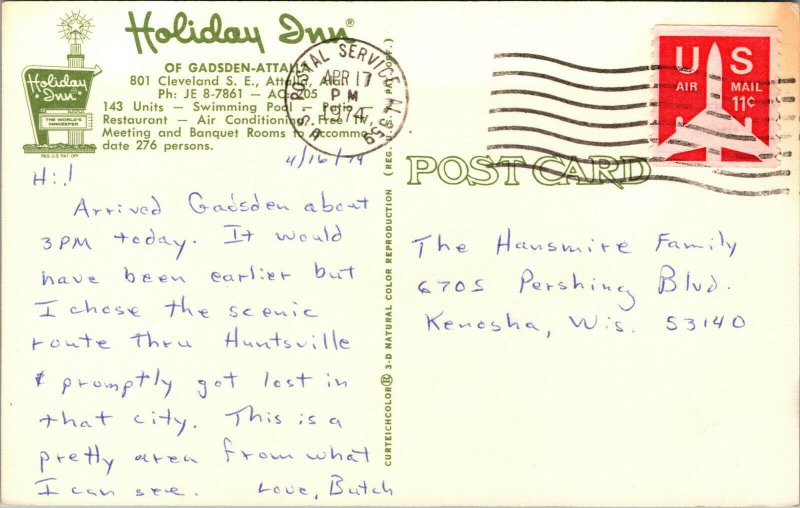 Holiday Inn®
OF GADSDEN-ATTALLA
801 Cleveland S. E., Attalla, Ala.
Ph: JE 8-7861 — AC 205
143 Units — Swimming Pool — Patio
Restaurant — Air Conditioning, Free TV,
Meeting and Banquet Rooms to accommo-
date 276 persons.
Holiday Inn®
THE WORLD'S
INNKEEPER
REG. U.S. PAT. OFF.
U.S. POSTAL SERVICE AL 359
APR 17
PM
1974
US
AIR MAIL
11¢
POST CARD
CURTEICHCOLOR® 3-D NATURAL COLOR REPRODUCTION (REG. U.S.A. PAT. OFF.)
4/16/74
Hi!
Arrived Gadsden about
3PM today. It would
have been earlier but
I chose the scenic
route thru Huntsville
& promptly got lost in
that city. This is a
pretty area from what
I can see. Love, Butch
The Hansmire Family
6705 Pershing Blvd.
Kenosha, Wis. 53140